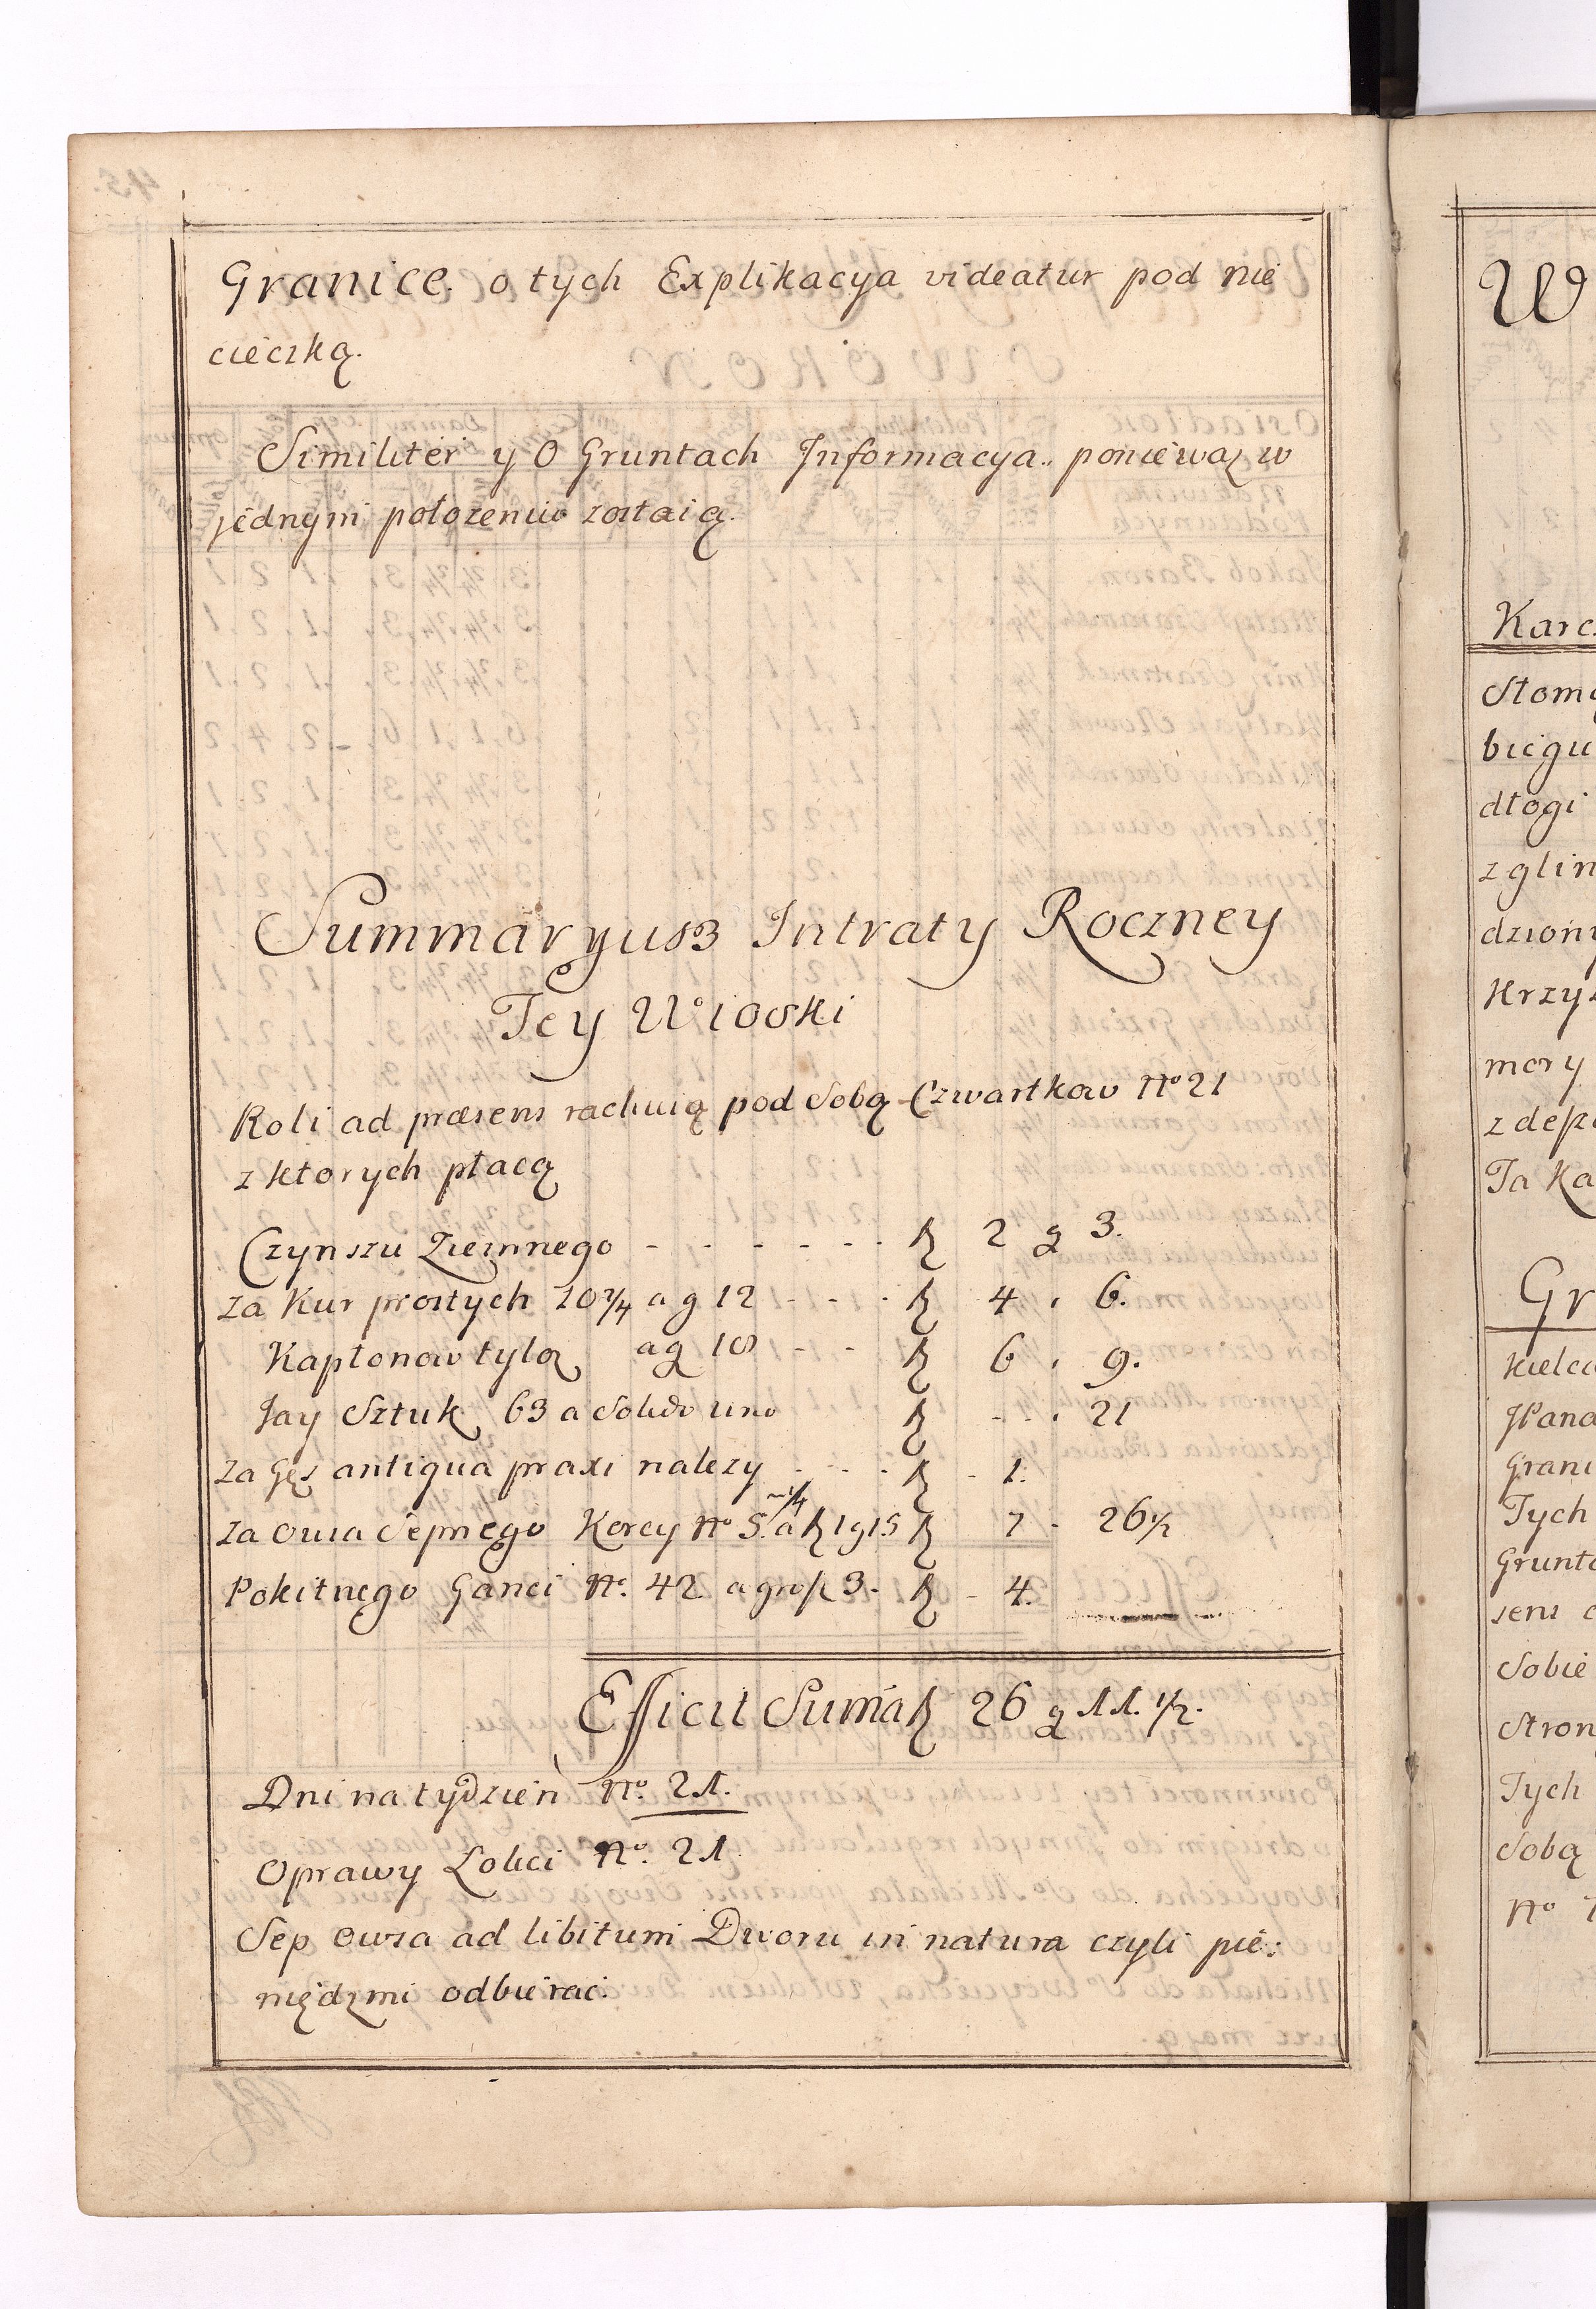 Granice. o tych Explikacya videatur pod nie
cieczką.
Similiter y O Gruntach Informacya.. poniewaz w
jednym położeniu zostaią.
Summaryusz Intraty Roczney
Tey Wioski
Roli ad præsens rachuią pod Sobą Czwartkow No 21
z ktorych płacą
Czynszu Ziemnego - - - - - - zł 2 g 3.
za Kur prostych 10 2/4 a g 12 - - - zł 4 . 6.
Kapłonow tylą a g 18 - - zł 6 . 9.
Jay Sztuk 63 a Solido uno zł - - . 21
za Gęś antiqua praxi nalezy - - - zł - 1.
za owsa Sepnego Korcy No 5 1/4 a zł 1 g 15 zł 7 - 26 1/2
Pokitnego Ganci No. 42 a grosz 3 - zł - 4.
Efficit Suma zł 26 g 11. 1/2.
Dni na tydzień No. 21.
Oprawy Łokci No. 21
Sep owsa ad libitum Dworu in natura czyli pie:
niędzmi odbierać.
W
Karc
Stom
biegu
dłogi
z glin
dziony
Krzyz
mory
Ta Ka
Gr
Kielc
JPana
Grani
Tych
Grunt
sens
Sobie
Stron
Tych
Sobą
No